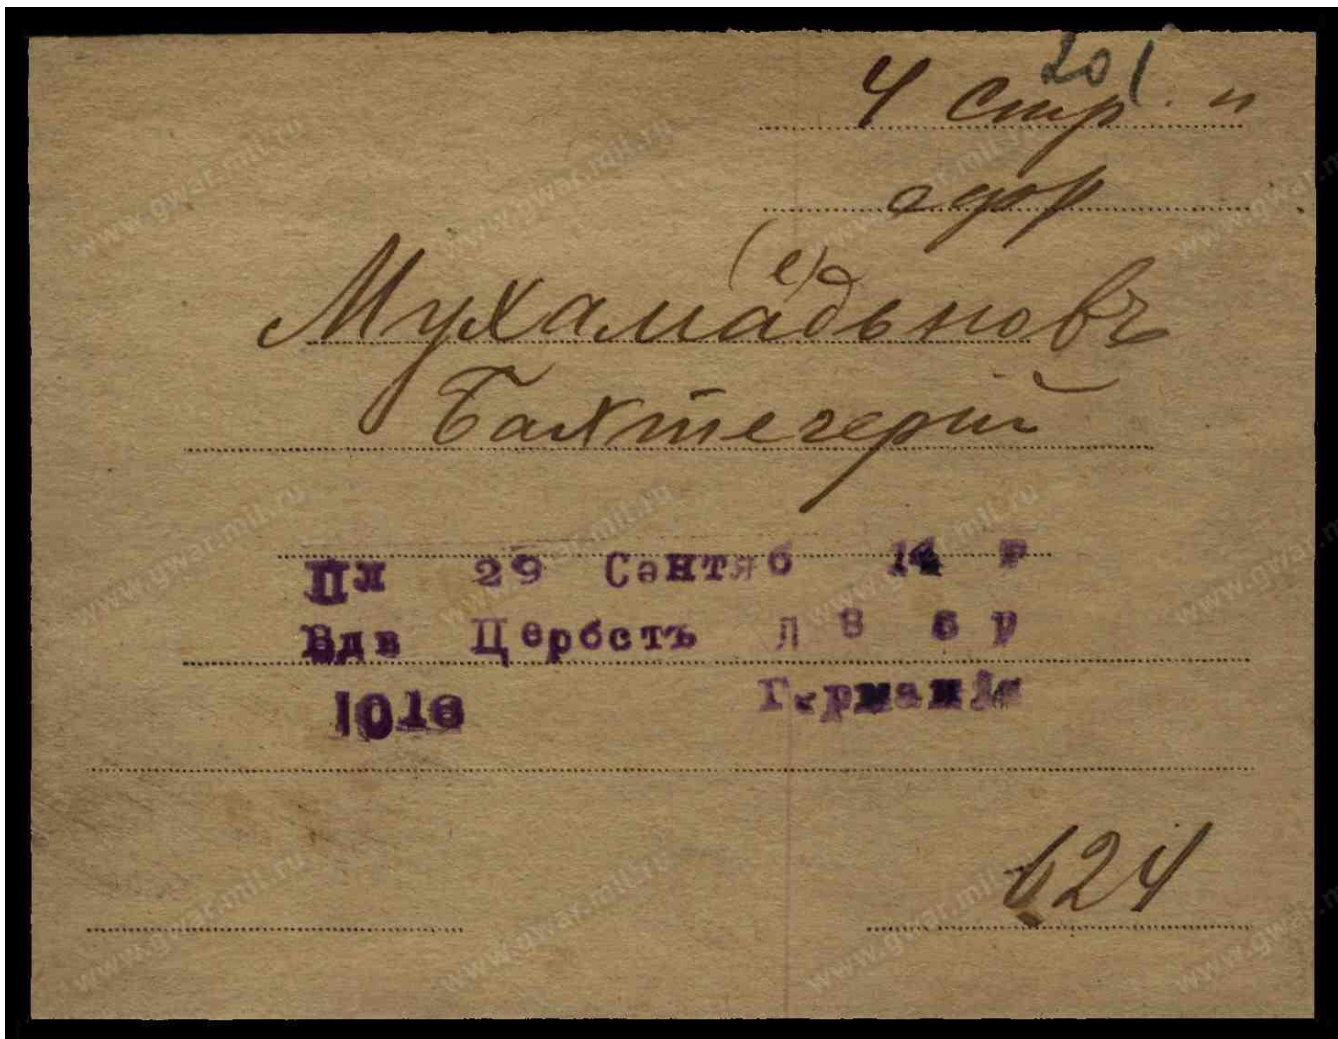 201
4 стр. п
ефр
(е)
Мухамадьновъ
Бахтегерий
Пл 29 Сентяб 14 г
Вдв Цербстъ Л 8 б р
1016 Германія
624
www.gwar.mil.ru